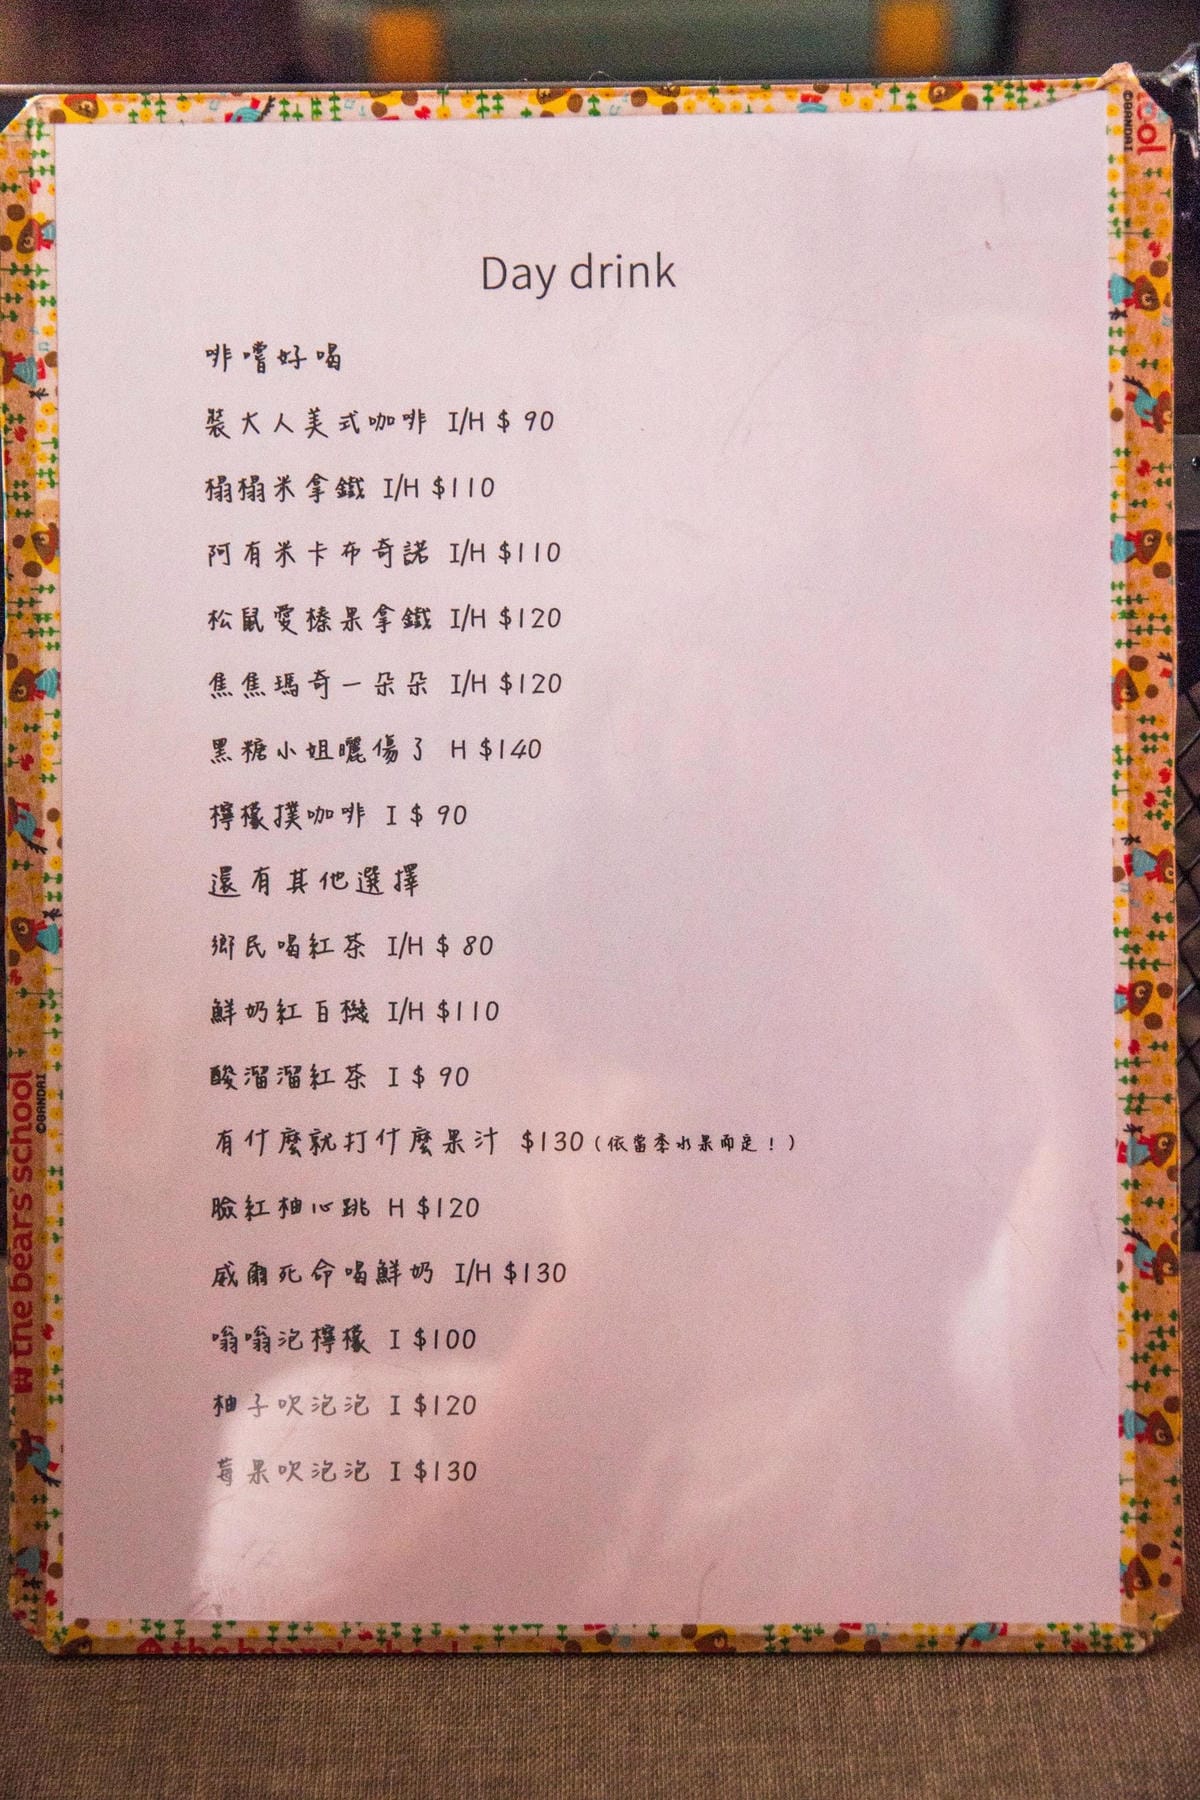 Day drink
啡嚐好喝
裝大人美式咖啡 I/H $ 90
榻榻米拿鐵 I/H $110
阿有米卡布奇諾 I/H $110
松鼠愛榛果拿鐵 I/H $120
焦焦瑪奇一朵朵 I/H $120
黑糖小姐曬傷了 H $140
檸檬撲咖啡 I $ 90
還有其他選擇
鄉民喝紅茶 I/H $ 80
鮮奶紅百機 I/H $110
酸溜溜紅茶 I $ 90
有什麼就打什麼果汁 $130 (依當季水果而定!)
臉紅柚心跳 H $120
威爾死命喝鮮奶 I/H $130
嗡嗡泡檸檬 I $100
柚子吹泡泡 I $120
莓果吹泡泡 I $130
the bears' school
©BANDAI
ool
©BANDAI
the bears' school